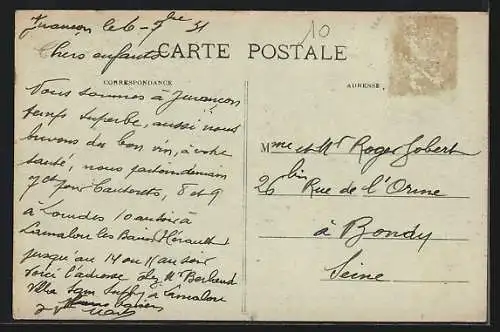 Jurançon le 6-7bre 31
10
Chers enfants
CARTE POSTALE
CORRESPONDANCE
ADRESSE
Nous sommes à Jurançon
temps superbe, aussi nous
buvons du bon vin, à votre
santé, nous partons demain
7ct pour Cauterets, 8 et 9
à Lourdes 10 au soir à
Lamalou les Bains (Hérault)
jusqu'au 14 ou 15 au soir
Voici l'adresse chez Mr Bertrand
Villa à Lamalou
Mme et Mr Roger Jobert
26 bis Rue de l'Orme
à Bondy
Seine